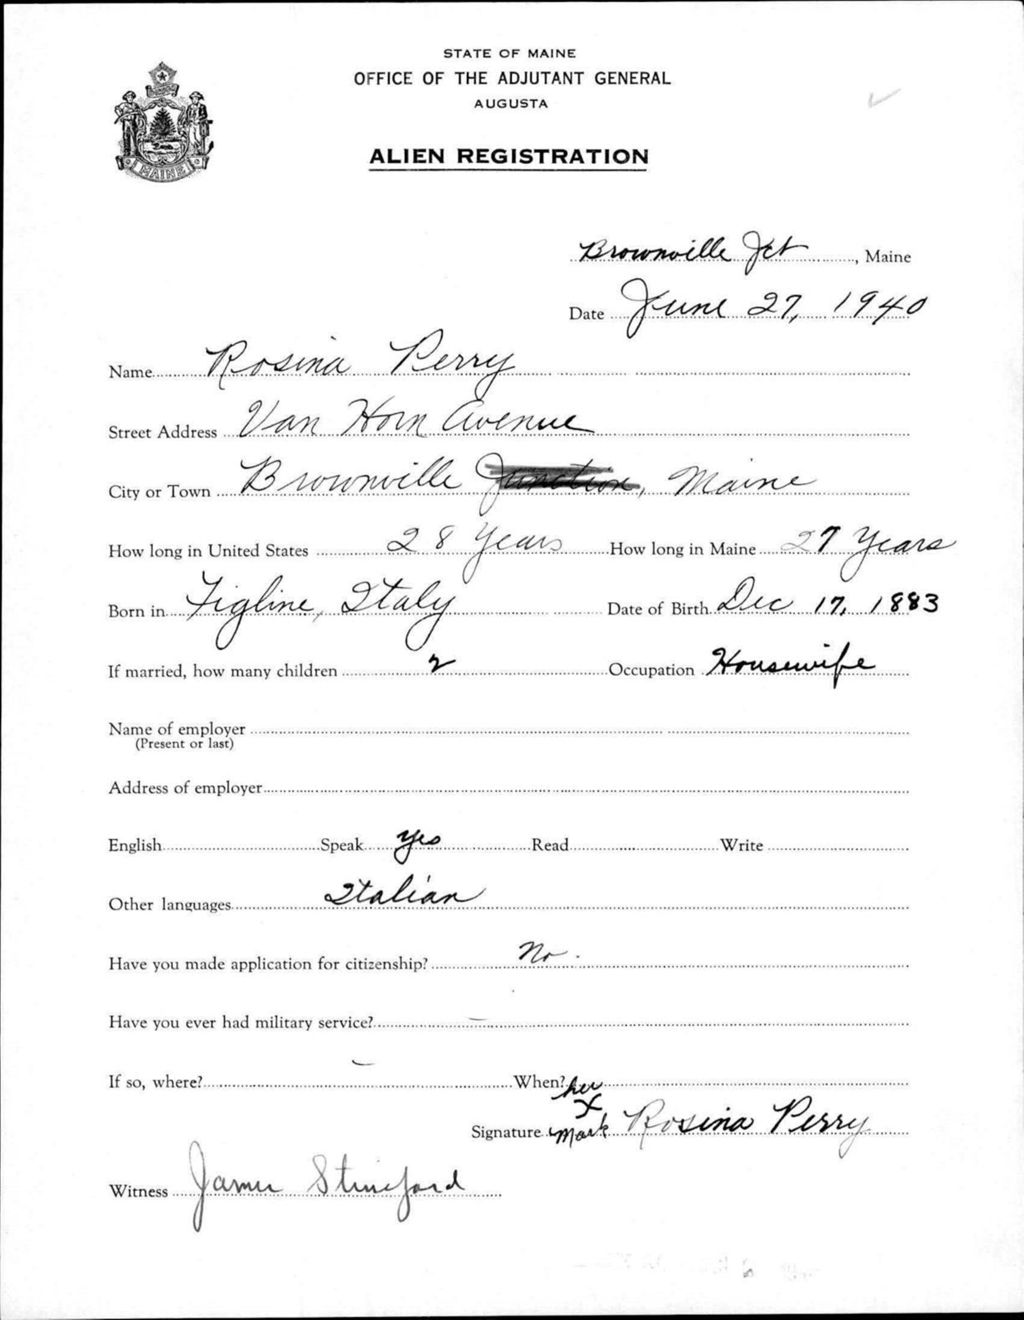 STATE OF MAINE
OFFICE OF THE ADJUTANT GENERAL
AUGUSTA
ALIEN REGISTRATION
MAINE
Brownville Jct, Maine
Date June 27, 1940
Name Rosina Perry
Street Address Van Horn Avenue
City or Town Brownville Junction, Maine
How long in United States 28 Years How long in Maine 27 Years
Born in Figline, Italy Date of Birth Dec 17, 1883
If married, how many children 2 Occupation Housewife
Name of employer
(Present or last)
Address of employer
English Speak yes Read Write
Other languages Italian
Have you made application for citizenship? No.
Have you ever had military service? —
If so, where? — When?
her
X
Signature Mark Rosina Perry
Witness James